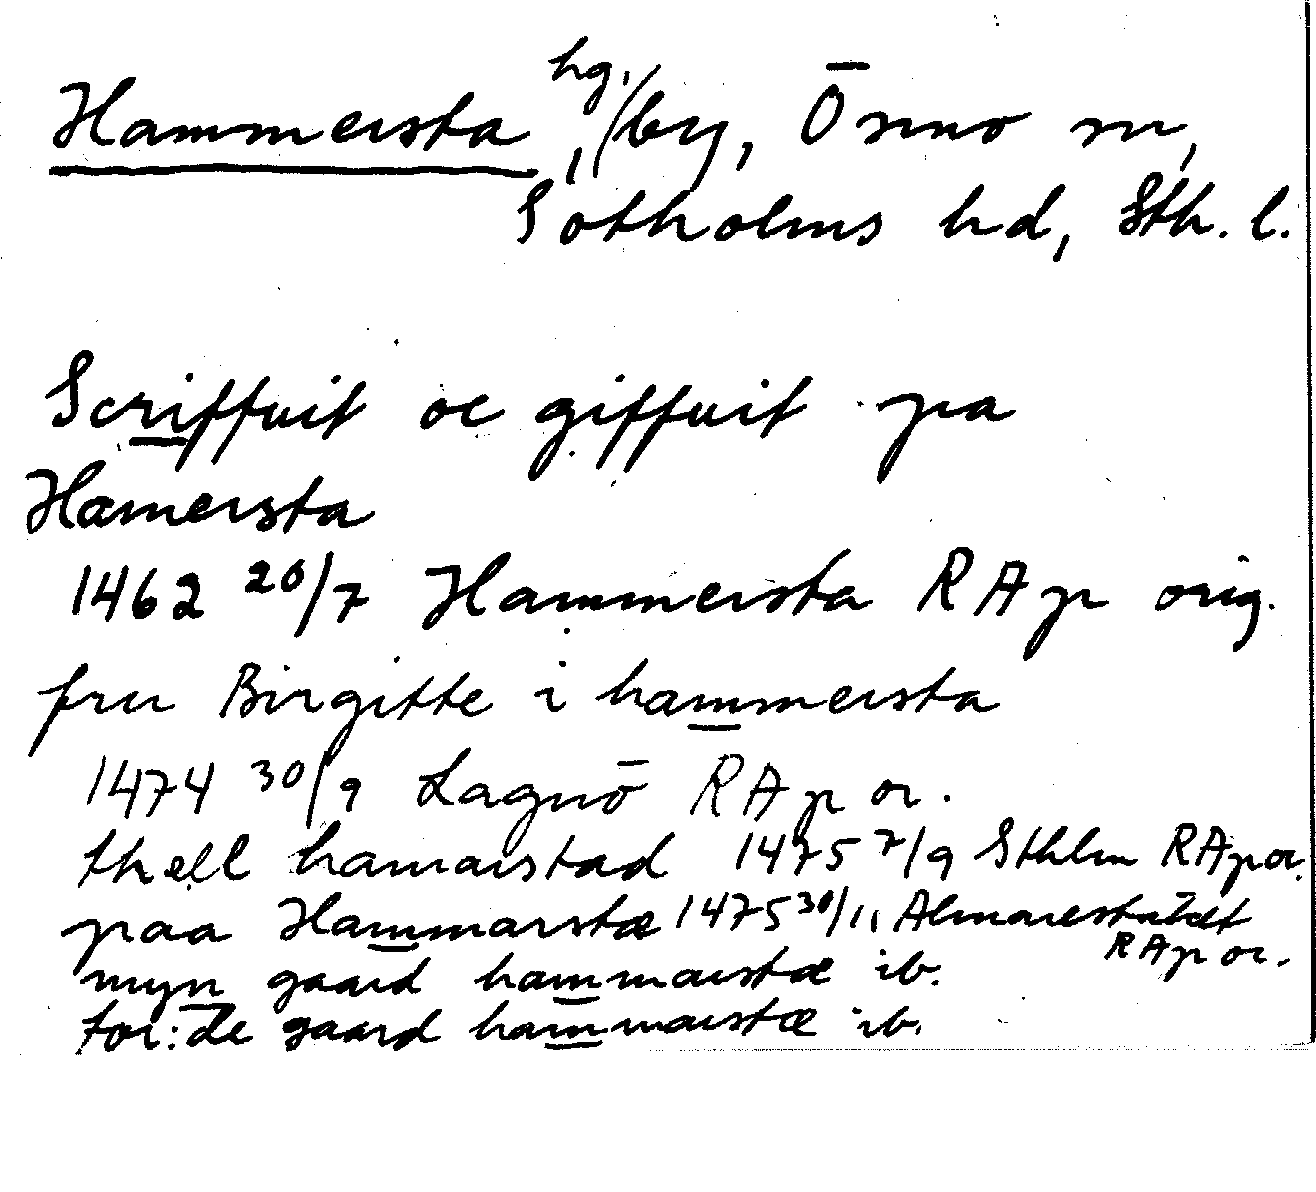 Hammersta, hg./by, Ösmo sn,
Sotholms hd, Sth. l.
Scriffuit oc giffuit pa
Hamersta
1462 20/7 Hammersta RAp orig.
fru Birgitte i hammersta
1474 30/9 Lagnö RAp or.
thell hamarstad 1475 7/9 Sthlm RAp or.
paa Hammarstæ 1475 30/11 Almarestäket
RAp or.
myn gaard hammarstæ ib.
for:de gaard hammarstæ ib.